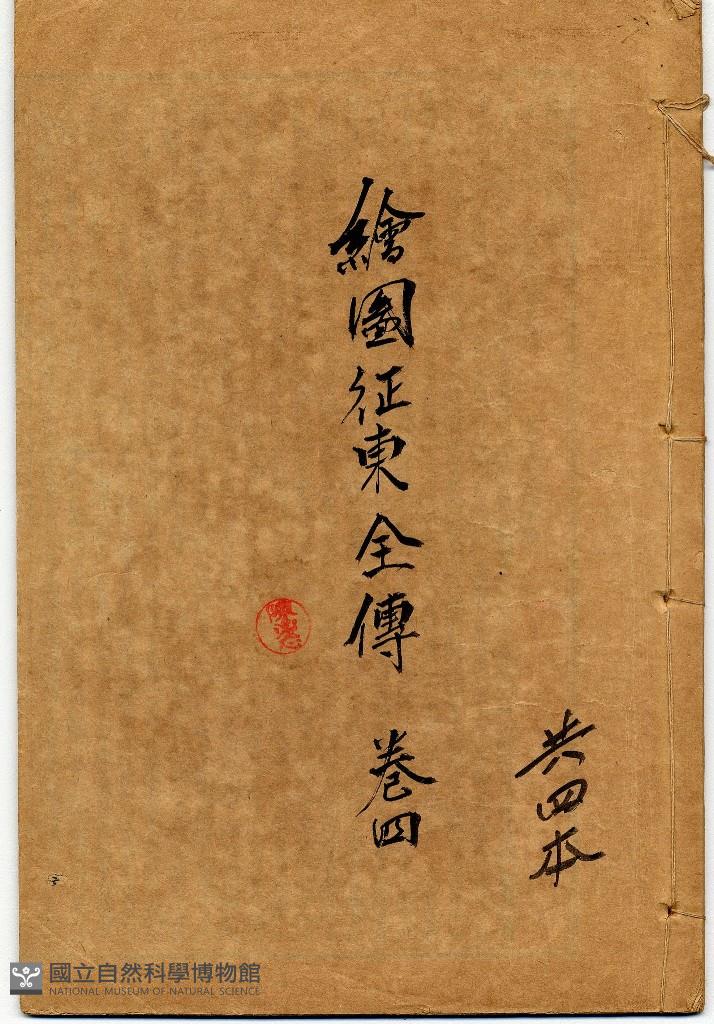 共四本
繪圖征東全傳 卷四
國立自然科學博物館
NATIONAL MUSEUM OF NATURAL SCIENCE